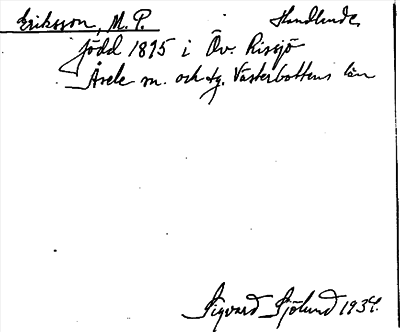 Eriksson, M. P. Handlande
född 1895 i Öv. Rissjö
Åsele sn. och tg. Västerbottens län
Sigvard Sjölund 1934.